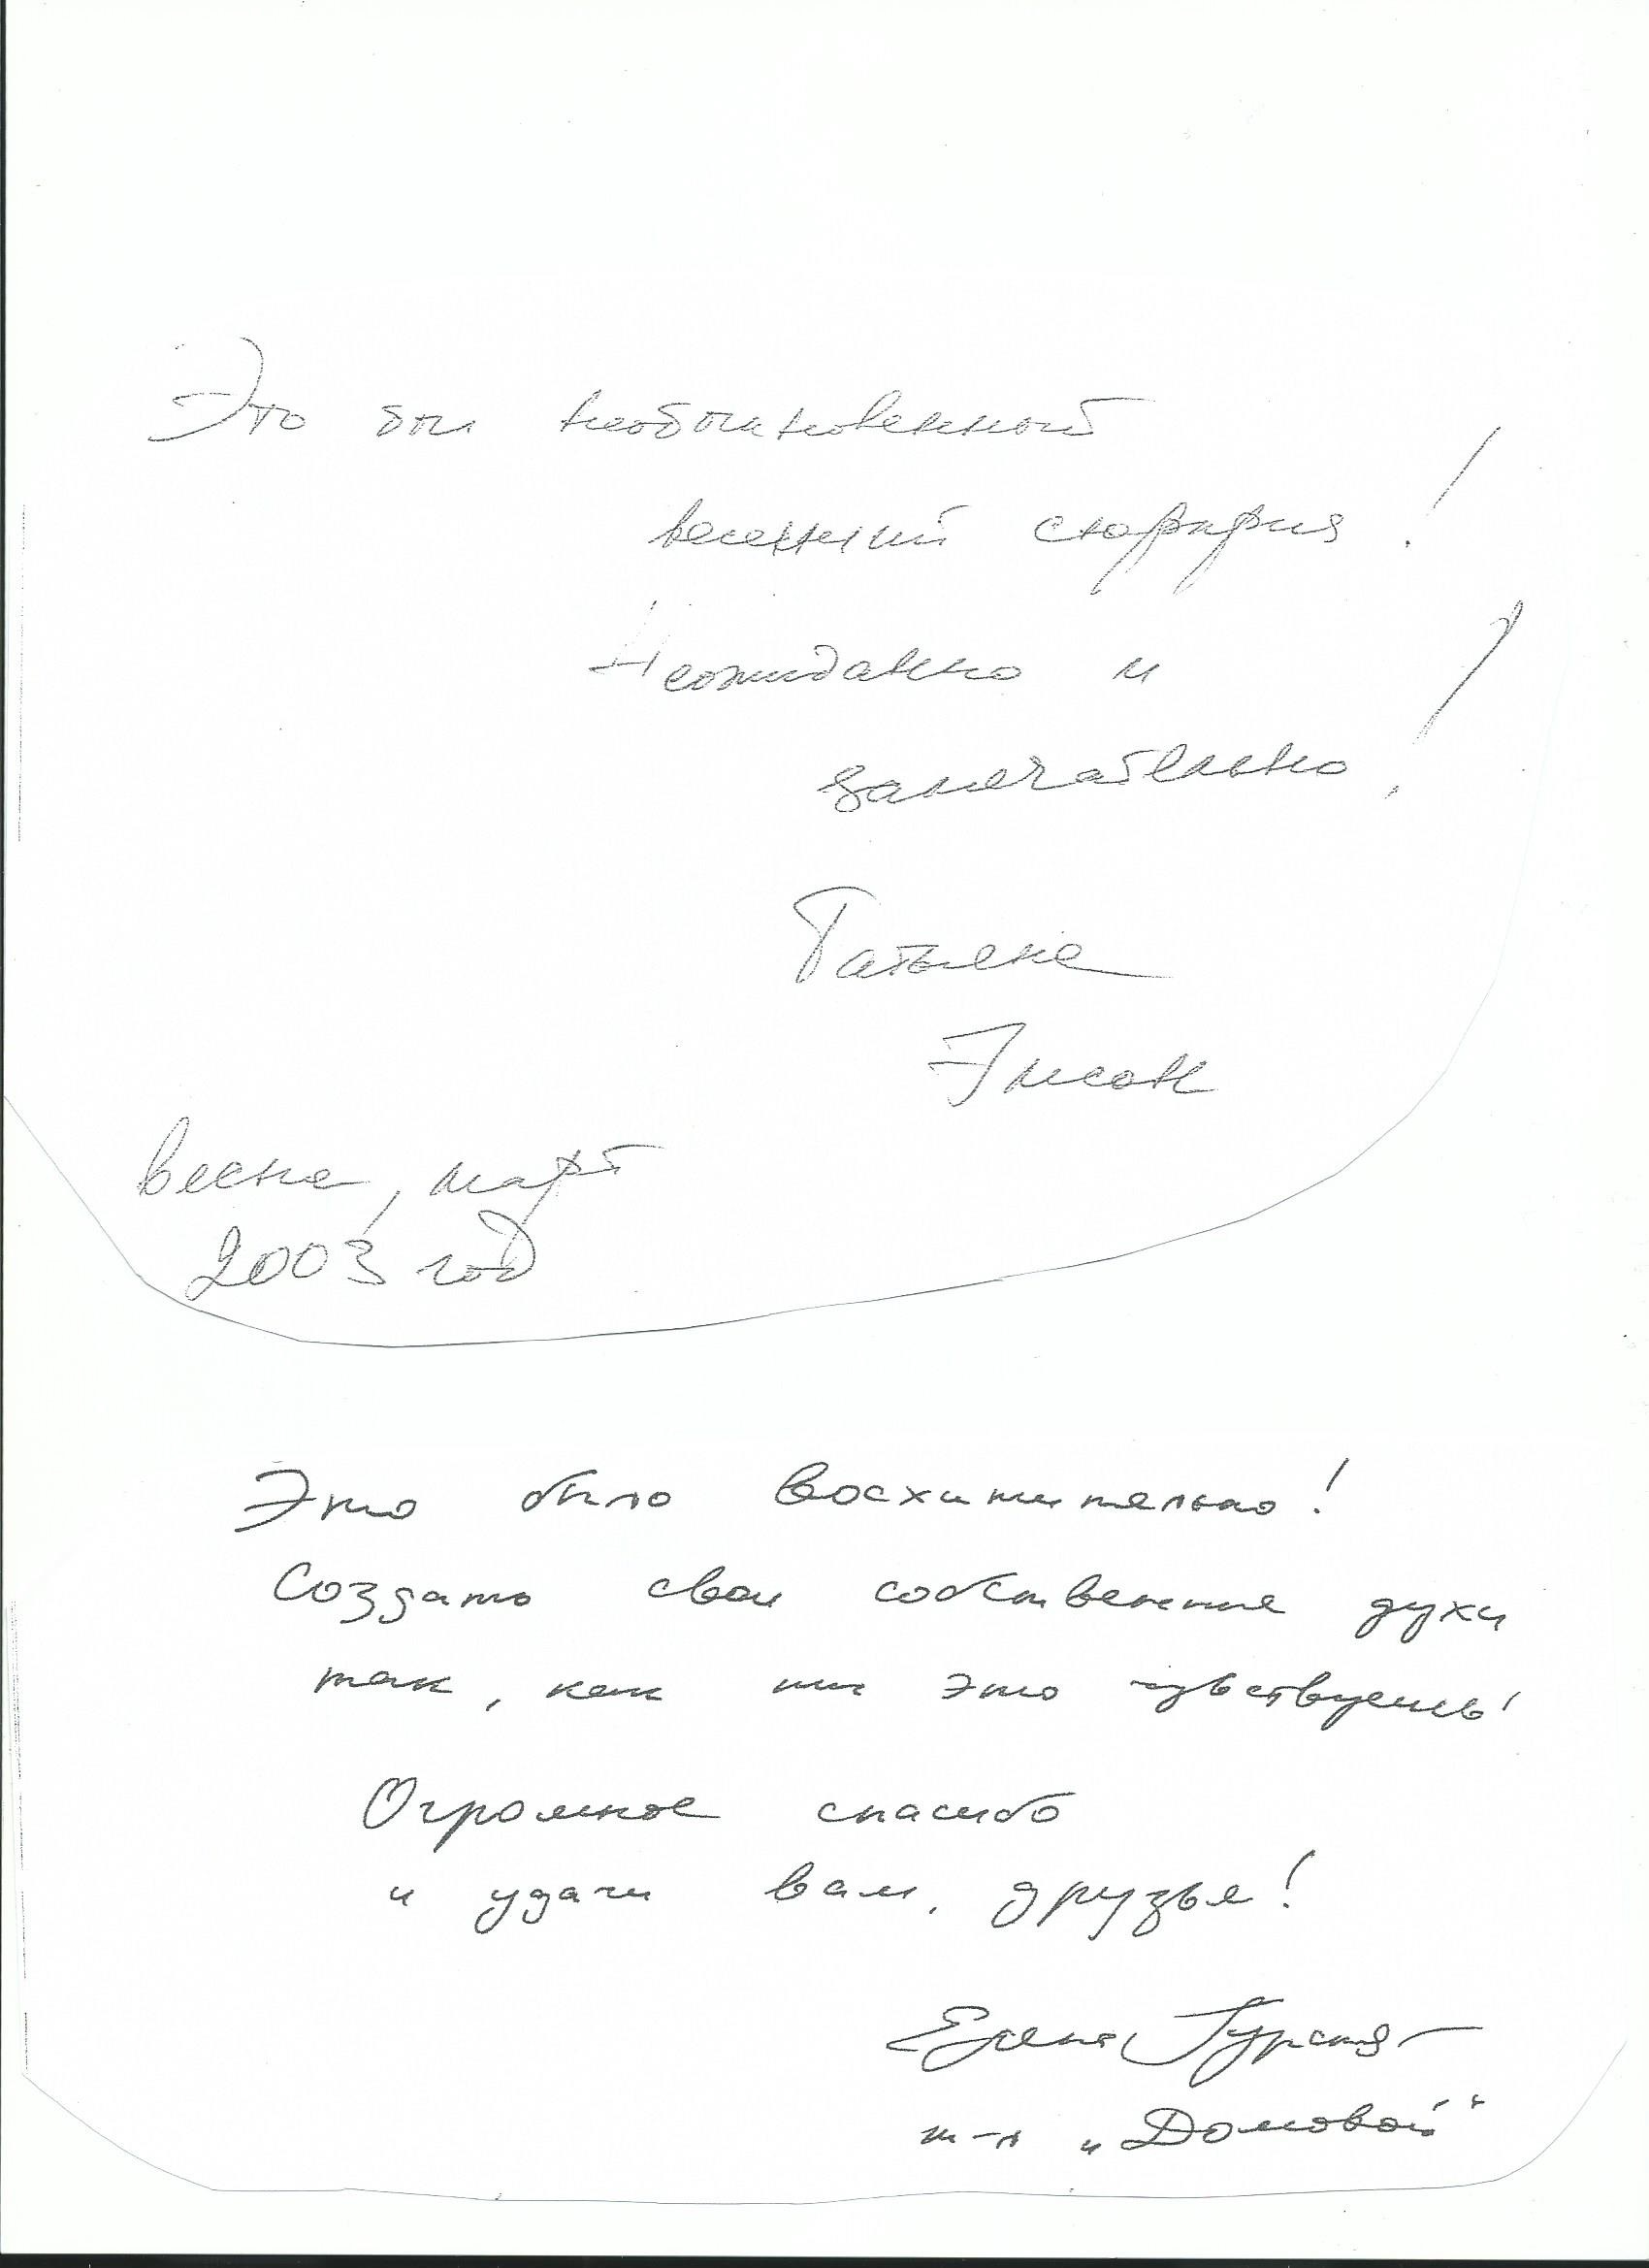 Это был необыкновенный
весенний сюрприз!
Неожиданно и
замечательно!
Татьяна
весна, март
2003 год
Это было восхитительно!
Создать свои собственные духи
так, как ты это чувствуешь!
Огромное спасибо
и удачи вам, друзья!
Елена
"Домовой"